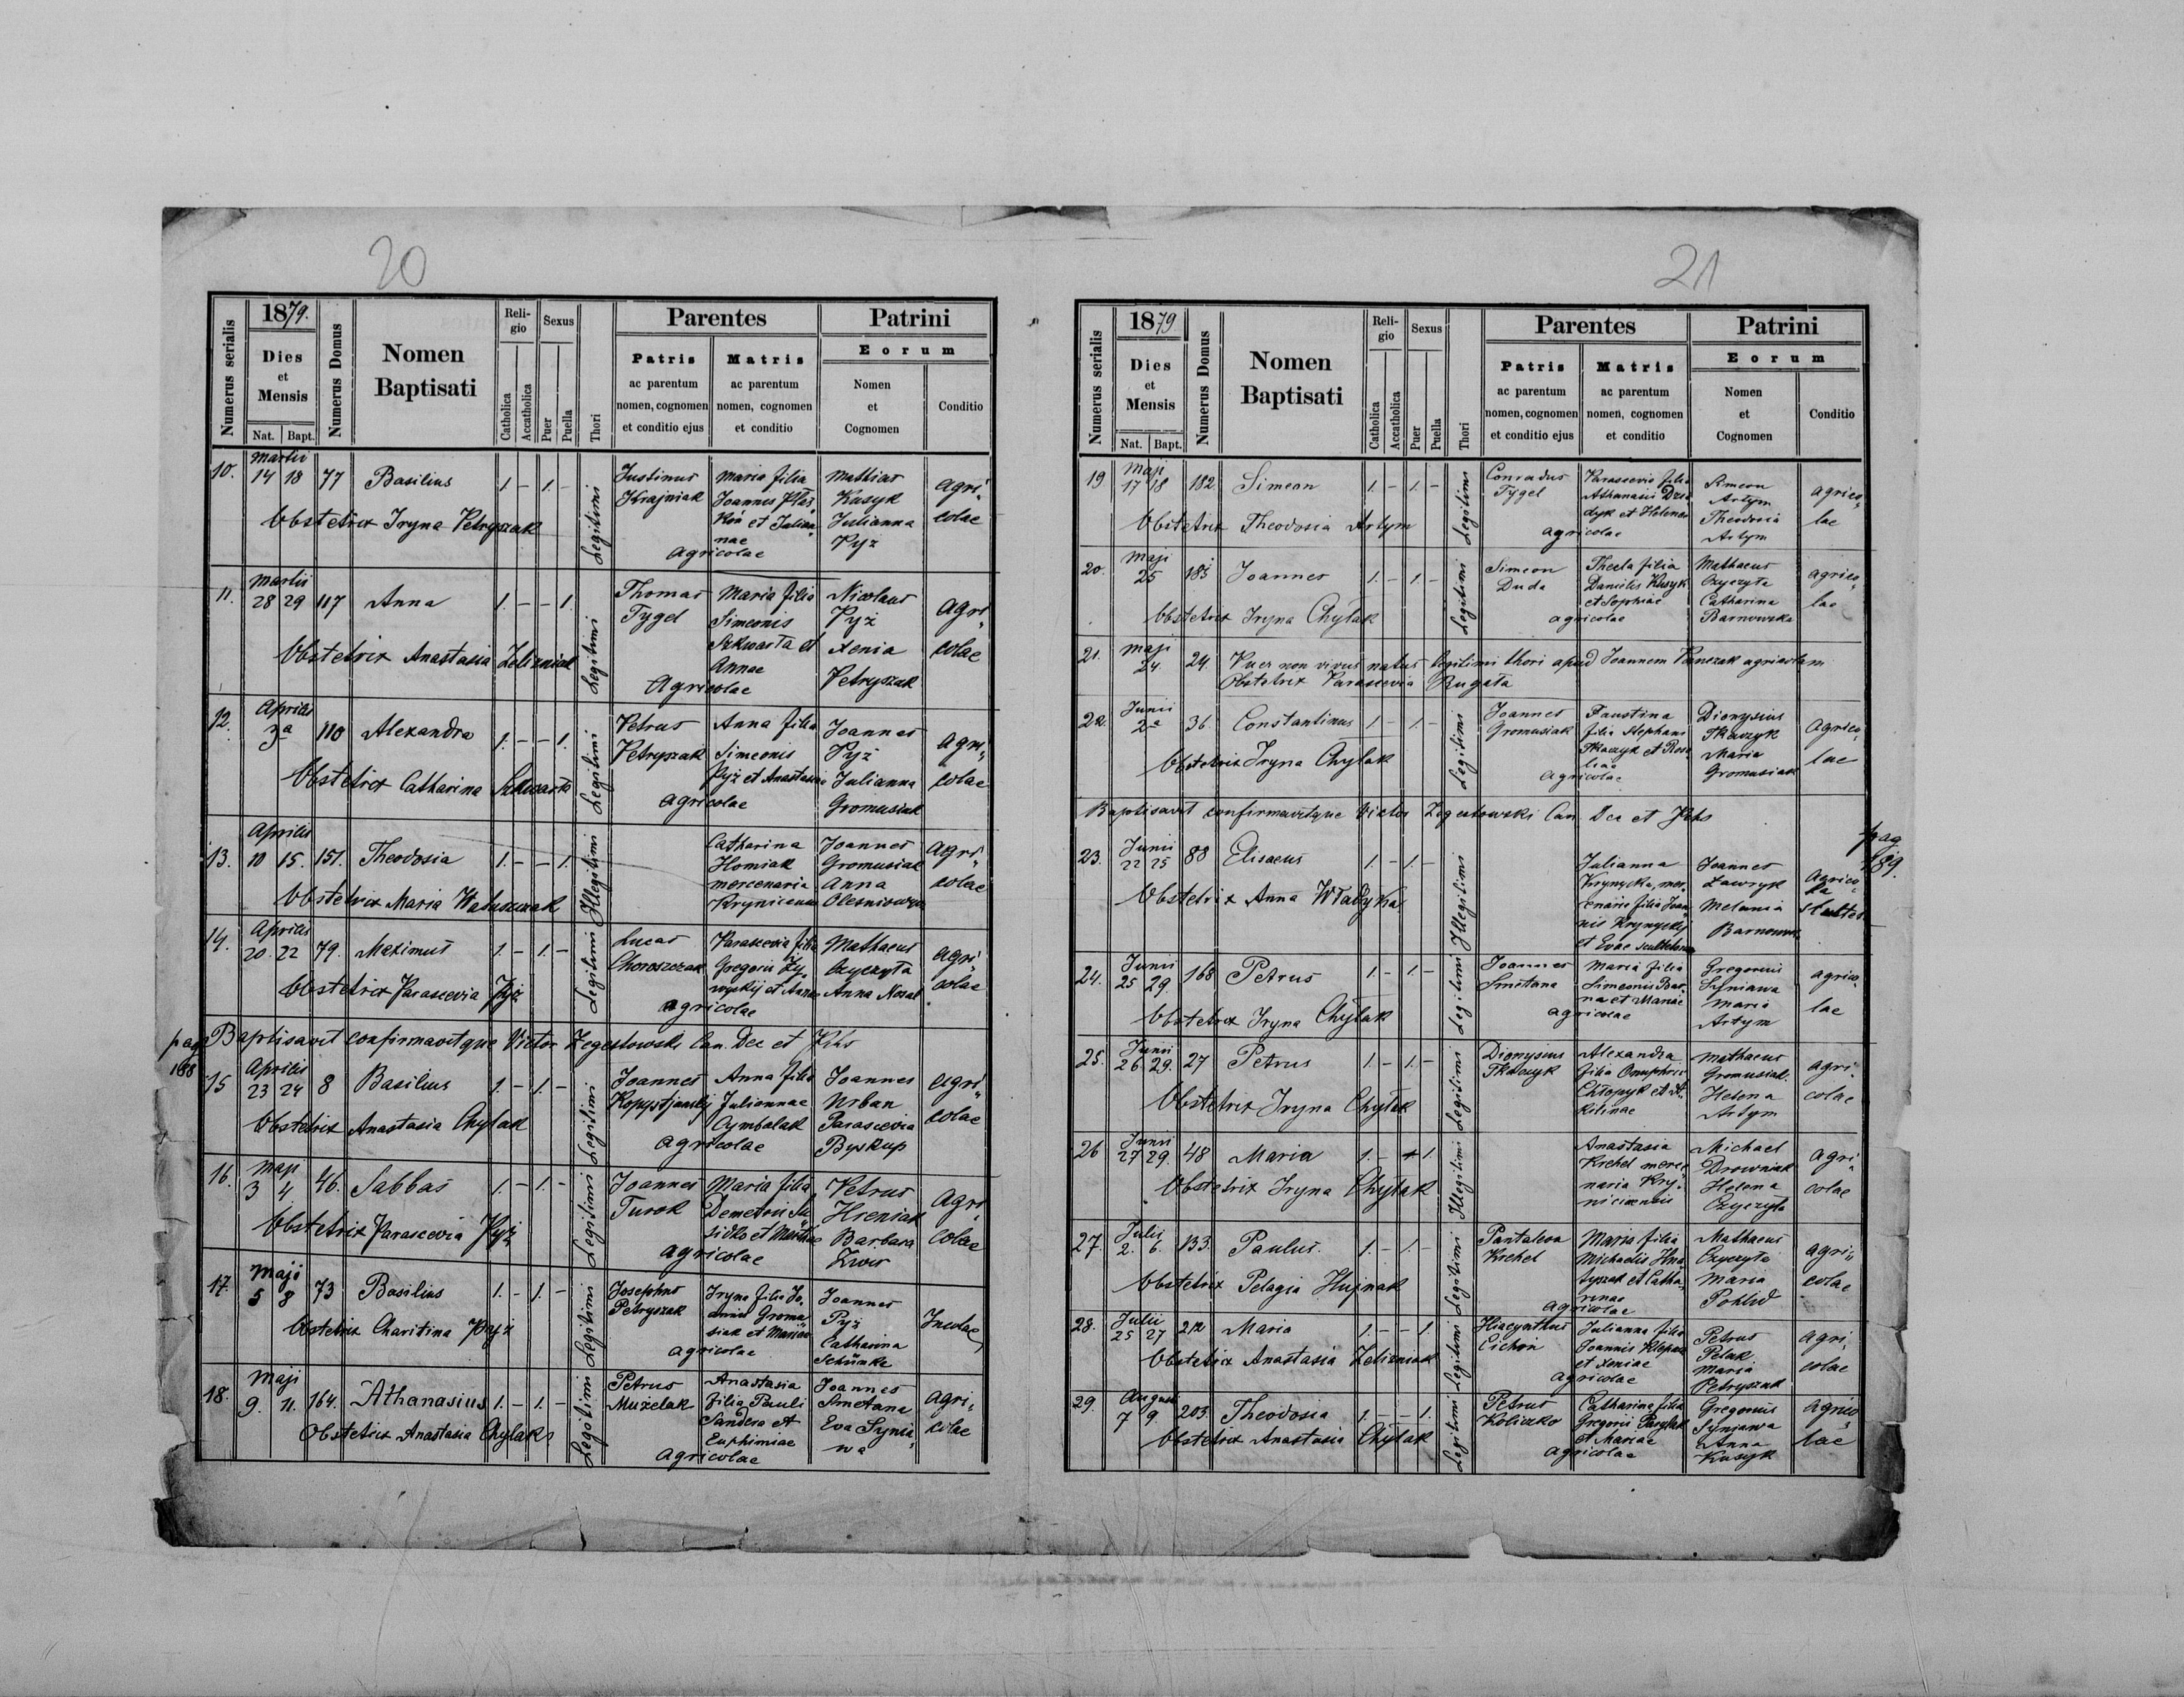 20
1879.
Numerus serialis
Dies et Mensis
Nat. Bapt.
Numerus Domus
Nomen Baptisati
Religio
Catholica
Accatholica
Sexus
Puer
Puella
Thori
Parentes
Patris ac parentum nomen, cognomen et conditio ejus
Matris ac parentum nomen, cognomen et conditio
Patrini
Eorum
Nomen et Cognomen
Conditio
10. Martii 14 18 77 Basilius 1 - 1. - Legitimi
Justinus Krajniak
Maria filia Joannes et Julian„nae
agricolae
Mathias Kusyk
Julianna Pyż
agri„colae
Obstetrix Iryna Petryszak
11. Martii 28 29 117 Anna 1. - - 1. Legitimi
Thomas Tygel
Maria filia Simeonis Szkwarła et Annae
Agricolae
Nicolaus Pyż
Xenia Petryszak
agri„colae
Obstetrix Anastasia Zelizniak
12. Aprilis 3a 110 Alexandra 1. - - 1. Legitimi
Petrus Petryszak
Anna filia Simeonis Pyż et Anastasiae
agricolae
Joannes Pyż
Julianna Gromusiak
agri„colae
Obstetrix Catharina Szkwarła
13. Aprilis 10 15. 151. Theodosia 1. - - 1. Illegitimi
Catharina Homiak mercenaria
Joannes Gromusiak
Anna
agri„colae
Obstetrix Maria
14. Aprilis 20. 22 79. Maximus 1. - 1. - Legitimi
Lucas Choroszczak
Parascevia filia Gregorii et Annae
agricolae
Mathaeus Czyczyła
Anna Nosal
agri„colae
Obstetrix Parascevia Pyż
pag 188
Baptisavit confirmavitque Victor Zegestowski Can. Dec et
15 Aprilis 23 24 8 Basilius 1. - 1. - Legitimi
Joannes Kopystjanskij
Anna filia Juliannae Cymbalak
agricolae
Joannes Urban
Parascevia Byskup
agri„colae
Obstetrix Anastasia Chylak
16. Maji 3 4. 46. Sabbas 1. - 1. - Legitimi
Joannes Turok
Maria filia Demetrii et Marthae
agricolae
Petrus Hreniak
Barbara
agri„colae
Obstetrix Parascevia Pyż
17. Maji 5 8 73 Basilius 1. - 1. - Legitimi
Josephus Petryszak
Iryna filia Jo„annis Gromu„siak et Mariae
agricolae
Joannes Pyż
Catharina Schünke
Incolae
Obstetrix Charitina Pyż
18. Maji 9. 11. 164. Athanasius 1. - 1. - Legitimi
Petrus Muzelak
Anastasia filia Pauli et Euphimiae
agricolae
Joannes Smetana
Eva Synia„wa
agri„colae
Obstetrix Anastasia Chylak
21
1879
Numerus serialis
Dies et Mensis
Nat. Bapt.
Numerus Domus
Nomen Baptisati
Religio
Catholica
Accatholica
Sexus
Puer
Puella
Thori
Parentes
Patris ac parentum nomen, cognomen et conditio ejus
Matris ac parentum nomen, cognomen et conditio
Patrini
Eorum
Nomen et Cognomen
Conditio
19 Maji 17 18 182 Simeon 1. - 1. - Legitimi
Conradus Tygel
Parascevia filia Athanasii Dzia„dyk et Helenae
agricolae
Simeon Artym
Theodosia Artym
agrico„lae
Obstetrix Theodosia Artym
20. Maji 25 185 Joannes 1. - 1. - Legitimi
Simeon Duda
Thecla filia Danielis Kusyk et Sophiae
agricolae
Mathaeus Czyczyła
Catharina Barnowska
agrico„lae
Obstetrix Iryna Chylak
21. Maji 24. 24. Puer non vivus natus legitimi thori apud Joannem agricolam
Obstetrix Parascevia Rugała
22. Junii 2a 36. Constantinus 1 - 1. - Legitimi
Joannes Gromusiak
Faustina filia Stephani Tkaczyk et
agricolae
Dionysius Tkaczyk
Maria Gromusiak
agrico„lae
Obstetrix Iryna Chylak
Baptisavit confirmavitque Victor Zegestowski Can. Dec et
pag 189.
23. Junii 22 25 88 Elisaeus 1. - 1. - Illegitimi
Julianna Krynycka, mer„cenaria filia Joan„nis Krynyckij et Evae
Joannes Ławryk
Melania
Obstetrix Anna Władyka
24. Junii 25 29 168 Petrus 1. - 1. - Legitimi
Joannes Smetana
Maria filia Simeonis Bar„na et Mariae
agricolae
Gregorius Syniawa
Maria Artym
agrico„lae
Obstetrix Iryna Chylak
25. Junii 26. 29. 27 Petrus 1. - 1. - Legitimi
Dionysius Tkaczyk
Alexandra filia Onuphrii et
Mathaeus Gromusiak.
Helena Artym
agri„colae
Obstetrix Iryna Chylak
26 Junii 27 29. 48 Maria 1. - 1. Illegitimi
Anastasia Krehel merce„naria Kry„nicensis
Michael Drowniak
Helena Czyczyła
agri„colae
Obstetrix Iryna Chylak
27. Julii 2. 6. 133. Paulus. 1. - 1. - Legitimi
Pantaleon Krehel
Maria filia Michaelis Hna„tyszak et Catha„rinae
agricolae
Mathaeus Czyczyła
Maria Pohlud
agri„colae
Obstetrix Pelagia Hujnak
28. Julii 25 27 212 Maria 1. - - 1. Legitimi
Hiacynthus Cichon
Julianna filia Joannis et Xeniae
agricolae
Petrus Pelak
Maria Petryszak
agri„colae
Obstetrix Anastasia Zelizniak
29. Augusti 7 9. 203. Theodosia 1. - - 1. Legitimi
Petrus Koliczko
Catharina filia Gregorii et Mariae
agricolae
Gregorius Syniawa
Anna Kusyk
agrico„lae
Obstetrix Anastasia Chylak